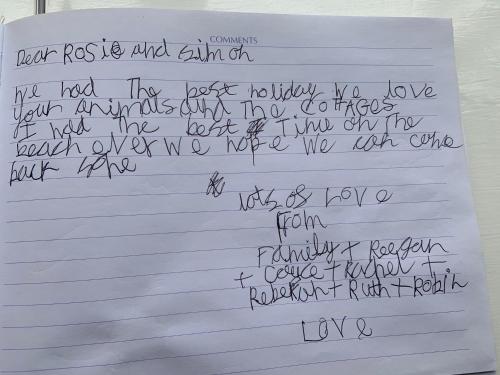 COMMENTS
Dear ROSie and simon
we had The best holiday we love
your animals and The COTTAGES
I had The best Time on The
beach ever we hope we can come
back
lots of Love
from
Family + Reegan
+ + Rachel +
Rebekah + Ruth + Robin
Love